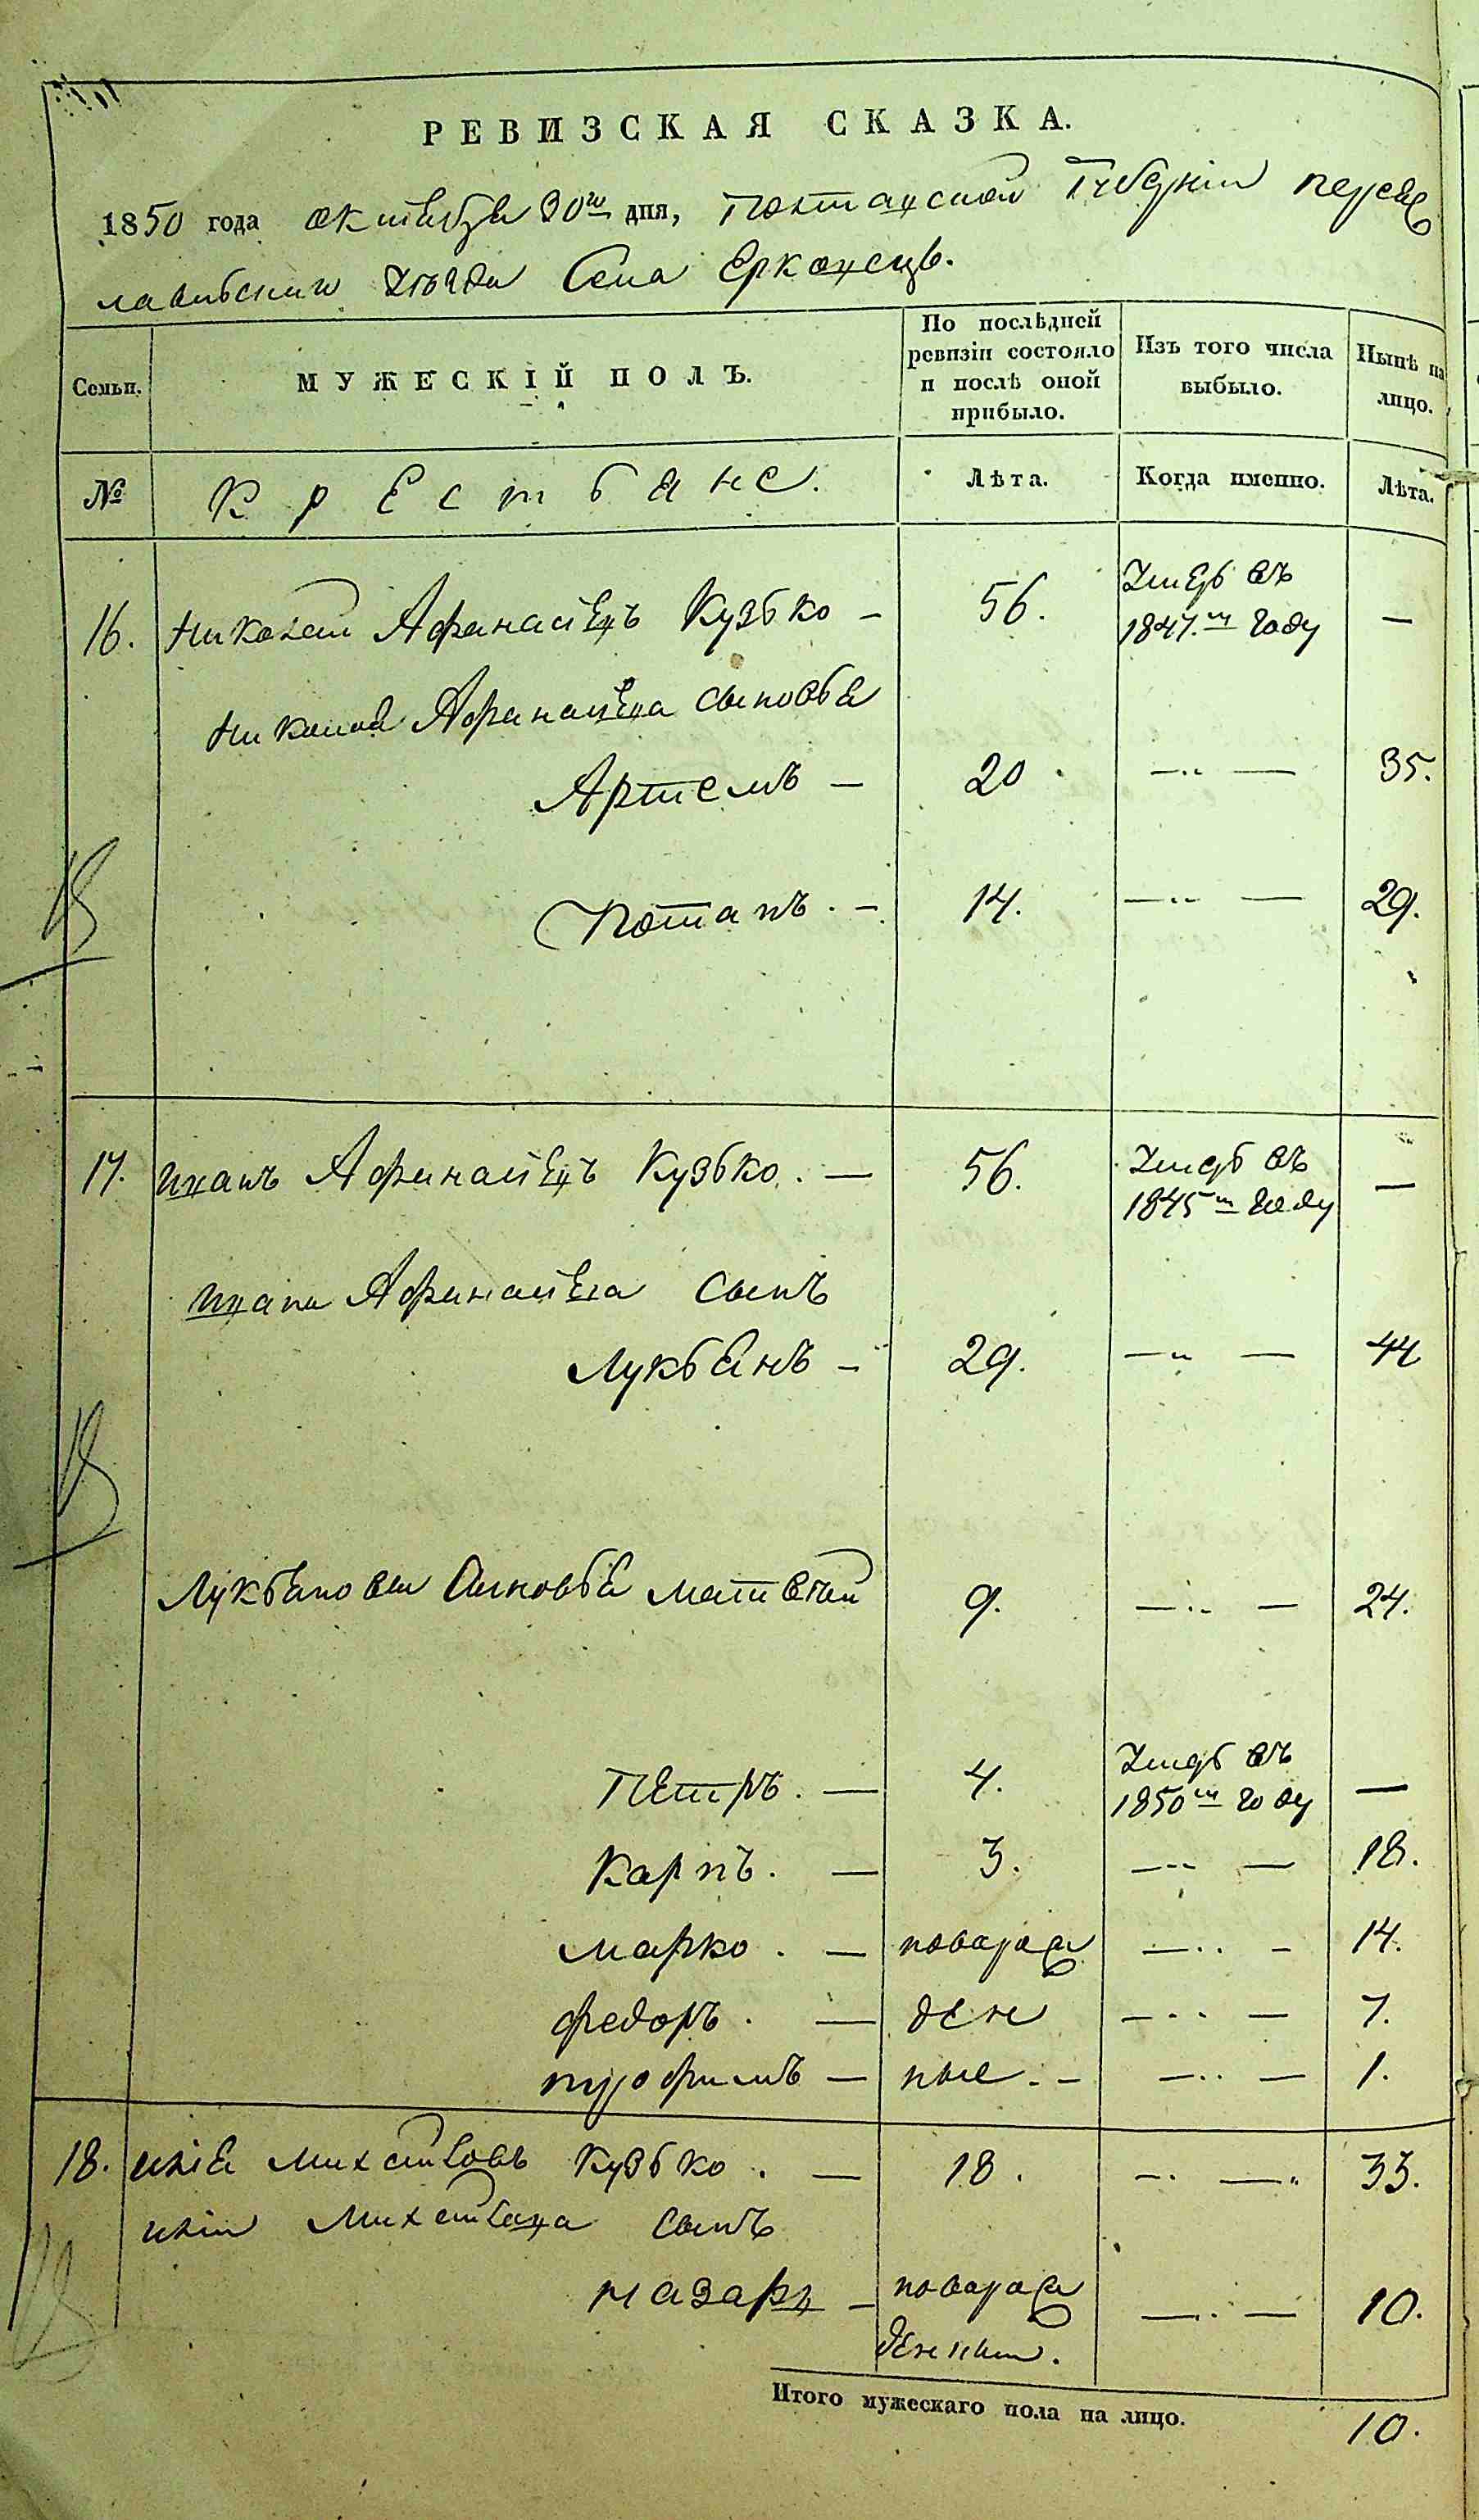 РЕВИЗСКАЯ СКАЗКА.
1850 года октября 30го дня, Полтавской Губерніи переяс
лавського уѣзда Села Ерковецъ.
Семьи.
МУЖЕСКІЙ ПОЛЪ.
По послѣдней ревизіи состояло и послѣ оной прибыло.
Изъ того числа выбыло.
Нынѣ на лицо.
№
Крестьяне.
Лѣта.
Когда именно.
Лѣта.
16. Николай Афанасіевъ Кузько — 56. Умеръ въ 1847.м году —
Николая Афанасіева сыновья
Артемъ — 20 — 35.
Потапъ. — 14. — 29.
17. Иванъ Афанасіевъ Кузько. — 56. Умеръ въ 1845м году —
Ивана Афанасіева сынъ
Лукьянъ — 29. — 44
Лукьяновы Сыновья Матвѣй 9. — 24.
Петръ. — 4. Умеръ въ 1850м году —
Карпъ. — 3. — 18.
Марко. — новорож — 14.
Федоръ. — ден — 7.
трофимъ — ные. — 1.
18. илія Михайловъ Кузько. — 18. — 33.
иліи Михайлова сынъ
Назаръ — новорож — 10.
денный.
Итого мужескаго пола на лицо. 10.